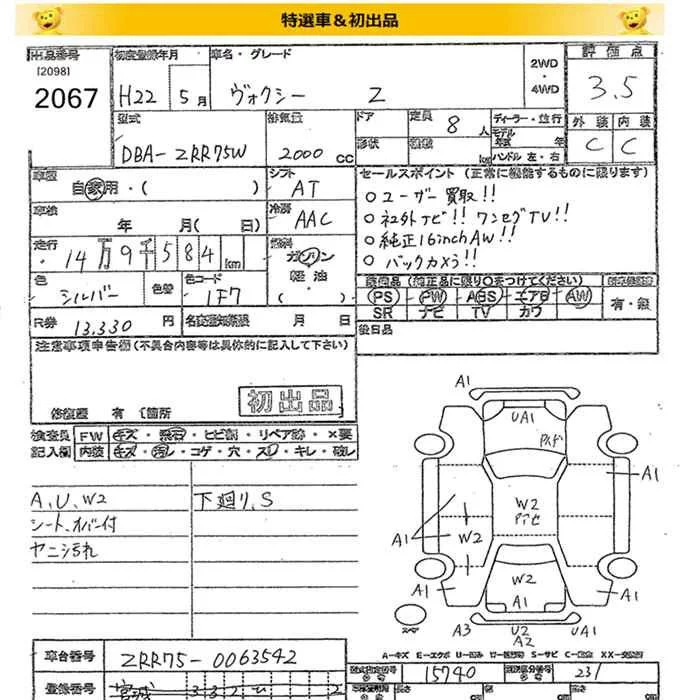 特選車＆初出品
出品番号
[2098]
2067
初度登録年月
H22 5月
車名・グレード
ヴォクシー Z
2WD
・
4WD
評価点
3.5
外装 内装
C C
型式
DBA-ZRR75W
排気量
2000 CC
ドア
形状
定員 8人
ディーラー・並行
モデル年式 年
ハンドル 左・右
車歴
自家用・( )
シフト
AT
車検
年 月( 日)
冷房
AAC
走行
14万9千584km
燃料
ガソリン
軽油
( )
色
シルバー
色替
色コード
1F7
R券 13,330円
名変期限 月 日
セールスポイント (正常に機能するものに限ります)
○ユーザー買取!!
○社外ナビ!! ワンセグTV!!
○純正16inchAW!!
○バックカメラ!!
装備品 (純正品に限り○をつけてください)
PS PW ABS エアB AW
SR ナビ TV カワ
有・無
後日品
注意事項申告欄 (不具合内容等は具体的に記入して下さい)
修復歴 有 〔箇所
初出品
検査員 FW キズ・飛石・ヒビ割・リペア跡・×要
記入欄 内装 キズ・汚レ・コゲ・穴・スレ・キレ・破レ
A,U,W2
下廻り,S
シート,カバー付
ヤニ汚れ
A1
UA1
A1
A1
W2
W2
W2
A1
A1
A1
A3
U2
A2
UA1
A-キズ E-エクボ U-凹み W-波 S-サビ C-腐食 XX-交換
車台番号 ZRR75-0063542
型式指定番号 15740
類別区分番号 231
登録番号 宮城